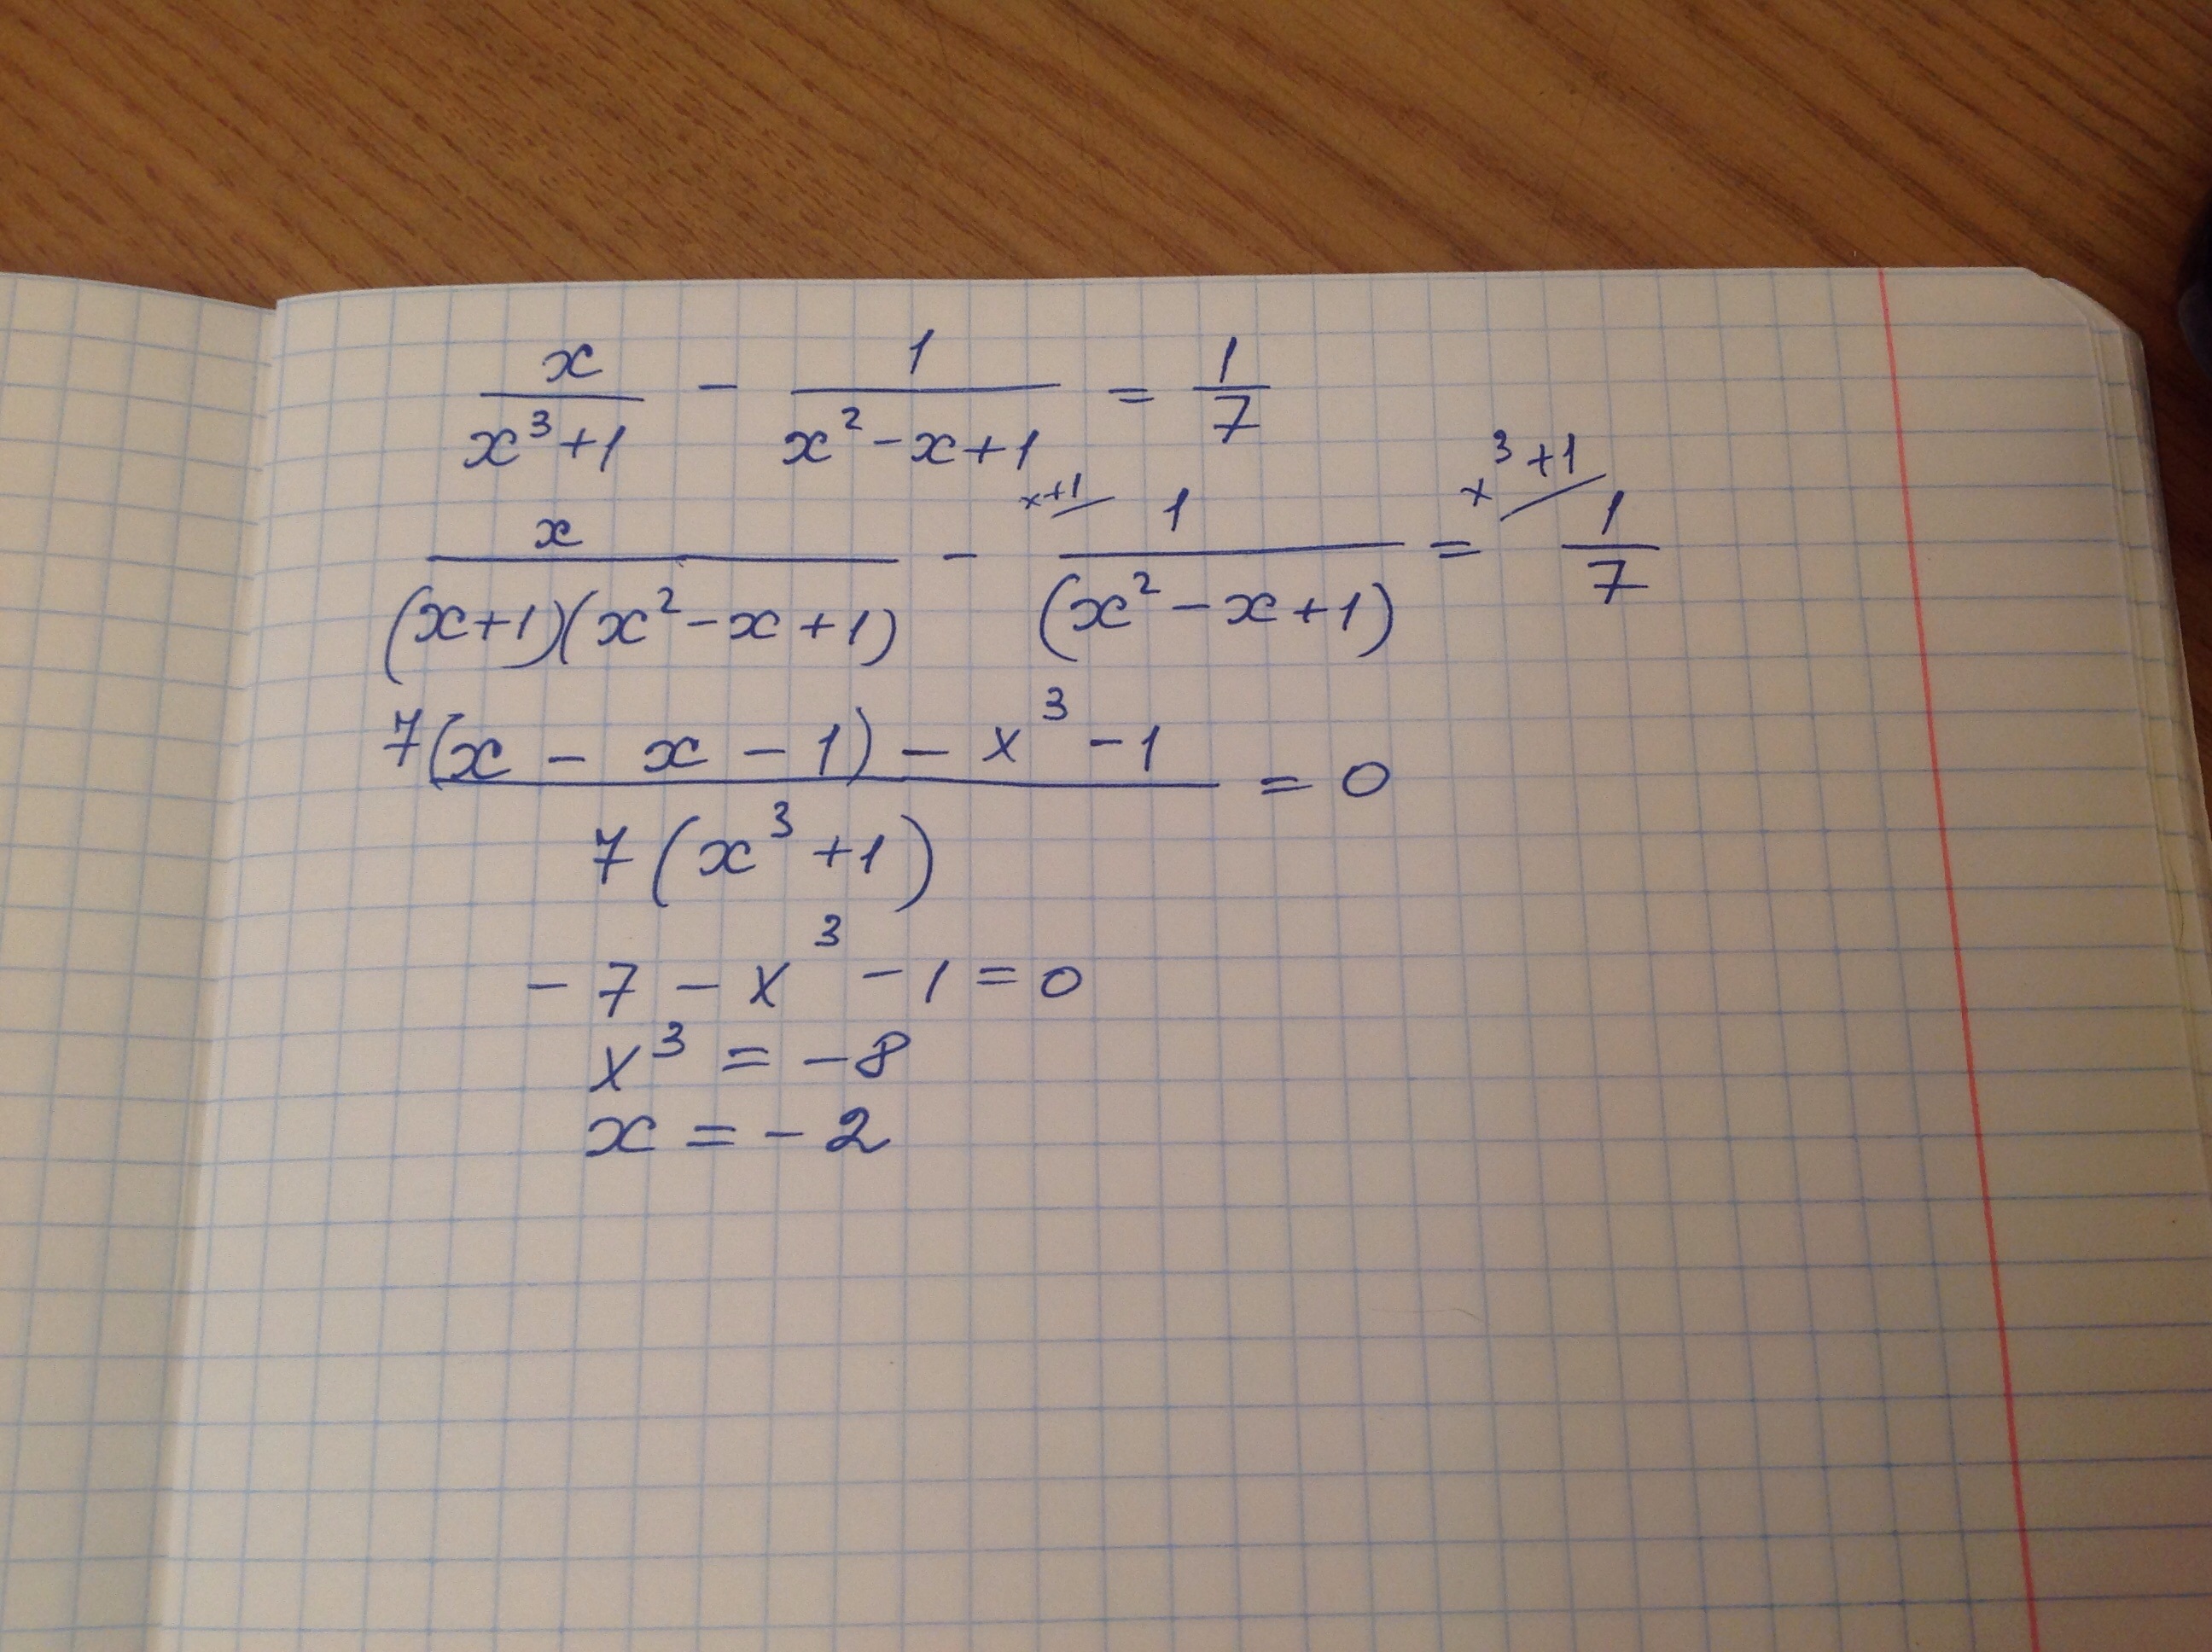 x/(x³+1) - 1/(x²-x+1) = 1/7
x/((x+1)(x²-x+1)) - x+1/ 1/(x²-x+1) = x³+1/ 1/7
(7(x - x - 1) - x³ - 1)/(7(x³+1)) = 0
-7 - x³ - 1 = 0
x³ = -8
x = -2